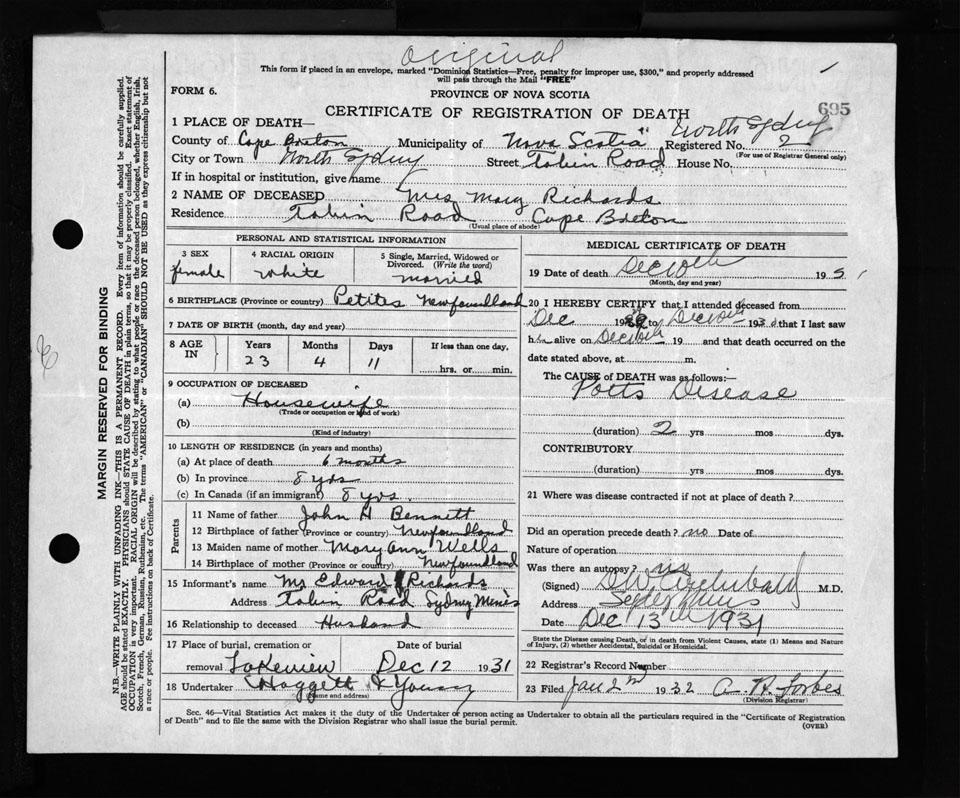 Original
This form if placed in an envelope, marked "Dominion Statistics—Free, penalty for improper use, $300," and properly addressed
will pass through the Mail "FREE"
FORM 6.
PROVINCE OF NOVA SCOTIA
695
CERTIFICATE OF REGISTRATION OF DEATH
1 PLACE OF DEATH—
North Sydney
County of Cape Breton Municipality of Nova Scotia Registered No. 2
(For use of Registrar General only)
City or Town North Sydney Street Tobin Road House No.
If in hospital or institution, give name
2 NAME OF DECEASED Mrs Mary Richards
Residence Tobin Road Cape Breton
(Usual place of abode)
PERSONAL AND STATISTICAL INFORMATION
3 SEX female
4 RACIAL ORIGIN white
5 Single, Married, Widowed or Divorced. (Write the word) married
6 BIRTHPLACE (Province or country) Petites Newfoundland
7 DATE OF BIRTH (month, day and year)
8 AGE IN Years 23 Months 4 Days 11 If less than one day, hrs. or min.
9 OCCUPATION OF DECEASED
(a) Housewife
(Trade or occupation or kind of work)
(b)
(Kind of industry)
10 LENGTH OF RESIDENCE (in years and months)
(a) At place of death 6 months
(b) In province 8 yrs
(c) In Canada (if an immigrant) 8 yrs.
Parents
11 Name of father John H Bennett
12 Birthplace of father (Province or country) Newfoundland
13 Maiden name of mother Mary Ann Wells
14 Birthplace of mother (Province or country) Newfoundland
15 Informant's name Mr Edward Richards
Address Tobin Road Sydney Mines
16 Relationship to deceased Husband
17 Place of burial, cremation or removal Lakeview
Date of burial Dec 12 1931
18 Undertaker Haggett & Young
(Name and address)
MEDICAL CERTIFICATE OF DEATH
19 Date of death Dec 10th 193
(Month, day and year)
20 I HEREBY CERTIFY that I attended deceased from
Dec 19 to Dec 10th 193 that I last saw
h alive on Dec 10th 19 and that death occurred on the
date stated above, at m.
The CAUSE of DEATH was as follows:—
Potts Disease
(duration) 2 yrs mos dys.
CONTRIBUTORY
(duration) yrs mos dys.
21 Where was disease contracted if not at place of death?
Did an operation precede death? no Date of
Nature of operation
Was there an autopsy? no
(Signed) Archibald M.D.
Address
Date Dec 13th 1931
State the Disease causing Death, or in death from Violent Causes, state (1) Means and Nature
of Injury, (2) whether Accidental, Suicidal or Homicidal.
22 Registrar's Record Number
23 Filed Jan 2nd 1932 A. R. Forbes
(Division Registrar)
Sec. 46—Vital Statistics Act makes it the duty of the Undertaker or person acting as Undertaker to obtain all the particulars required in the "Certificate of Registration
of Death" and to file the same with the Division Registrar who shall issue the burial permit.
(OVER)
MARGIN RESERVED FOR BINDING
N.B.—WRITE PLAINLY WITH UNFADING INK—THIS IS A PERMANENT RECORD. Every item of information should be carefully supplied.
AGE should be stated EXACTLY. PHYSICIANS should STATE CAUSE OF DEATH in plain terms, so that it may be properly classified. Exact statement of
OCCUPATION is very important. RACIAL ORIGIN will be described by stating to what people or race the deceased person belonged, whether English, Irish,
Scotch, French, German, Russian, Ruthenian, etc. The terms "AMERICAN" or "CANADIAN" SHOULD NOT BE USED as they express citizenship but not
a race or people. See instructions on back of Certificate.